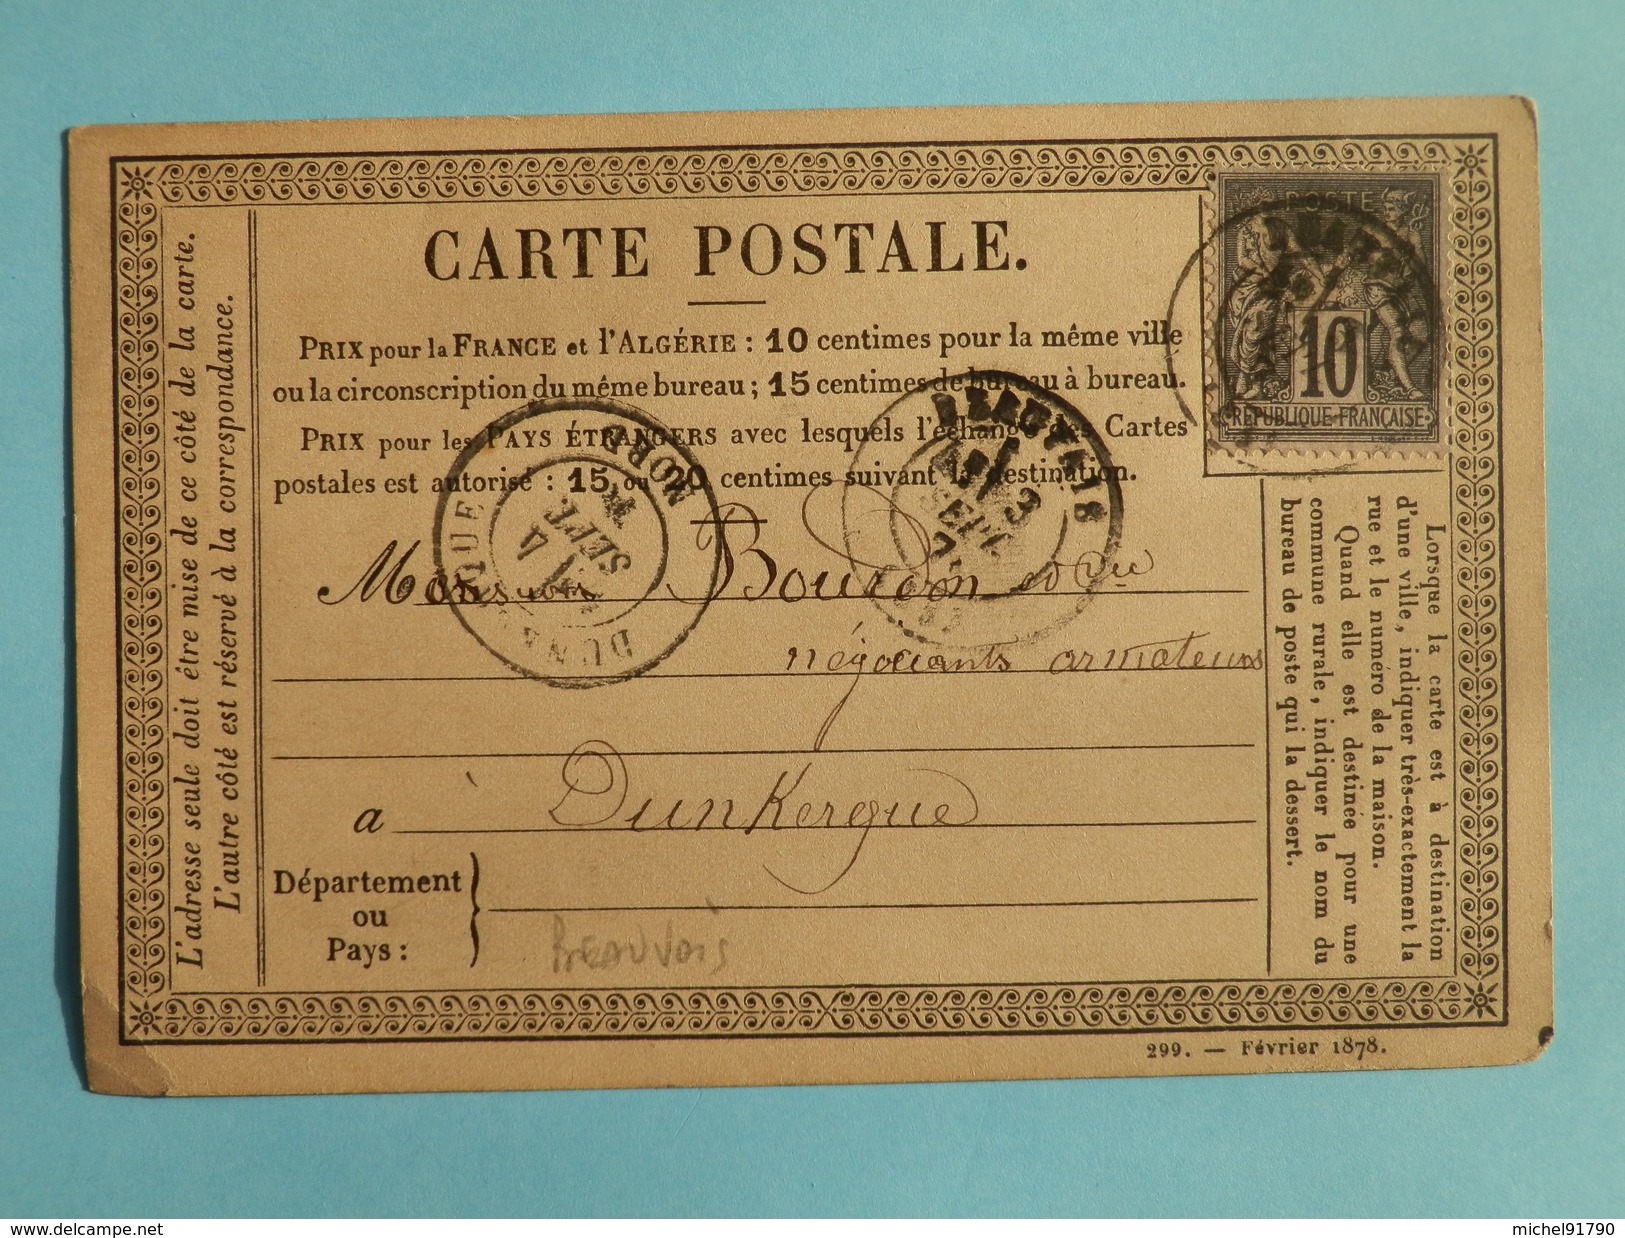 CARTE POSTALE.
PRIX pour la FRANCE et l'ALGÉRIE : 10 centimes pour la même ville
ou la circonscription du même bureau ; 15 centimes de bureau à bureau.
PRIX pour les PAYS ÉTRANGERS avec lesquels l'échange des Cartes
postales est autorisé : 15 ou 20 centimes suivant la destination.
POSTE
10
RÉPUBLIQUE FRANÇAISE
BEAUVAIS
3
SEPT
NORD
4
SEPT
Monsieur Bourdon
négociants armateurs
à Dunkerque
a
Département
ou
Pays :
Beauvais
L'adresse seule doit être mise de ce côté de la carte.
L'autre côté est réservé à la correspondance.
Lorsque la carte est à destination
d'une ville, indiquer très-exactement la
rue et le numéro de la maison.
Quand elle est destinée pour une
commune rurale, indiquer le nom du
bureau de poste qui la dessert.
299. — Février 1878.
delcampe.net
michel91790